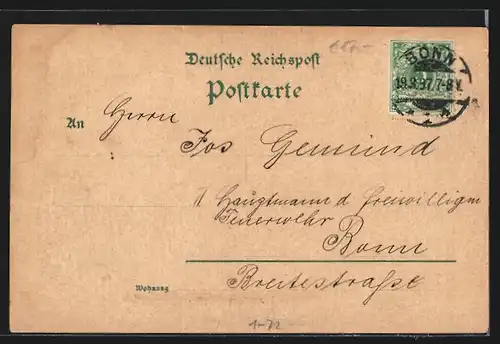 Deutsche Reichspost
Postkarte
BONN
19.3.97.7-8 V.
An Herrn
Jos Gemünd
1 Hauptmann d freiwilligen
Feuerwehr
Bonn
Breitestraße
Wohnung
1-72